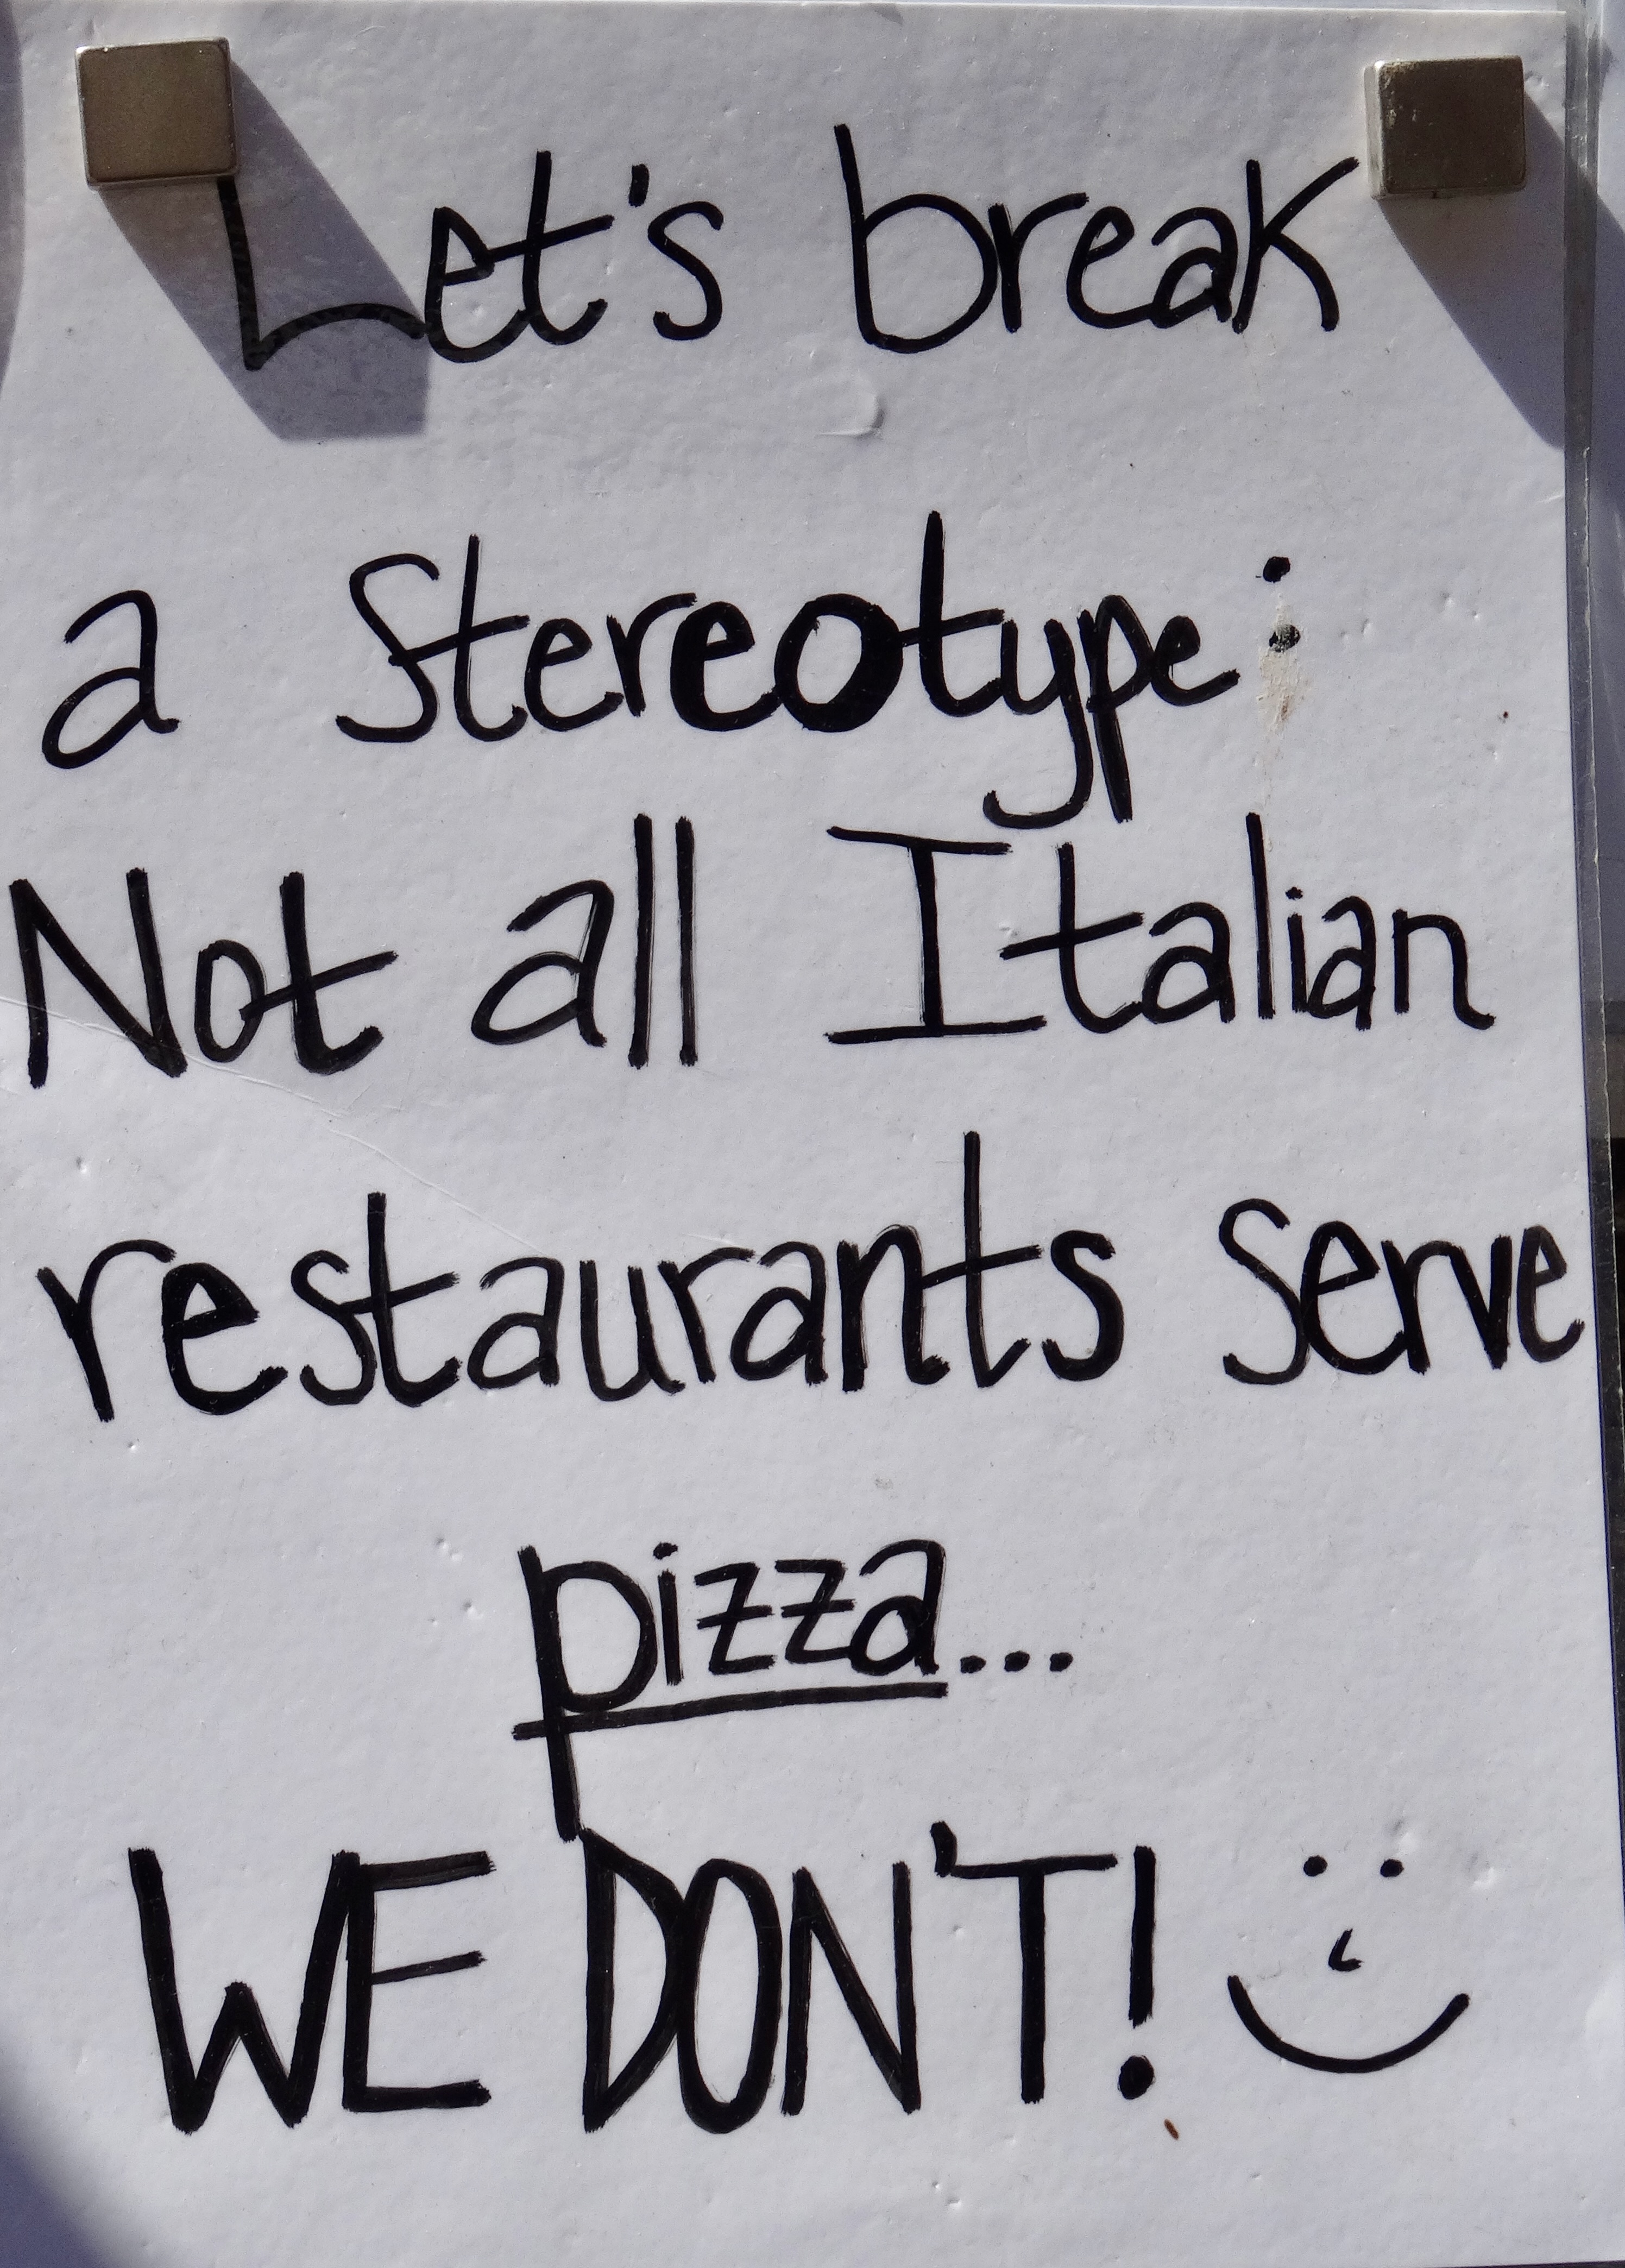 Let's break
a Stereotype:
Not all Italian
restaurants serve
pizza...
WE DON'T!